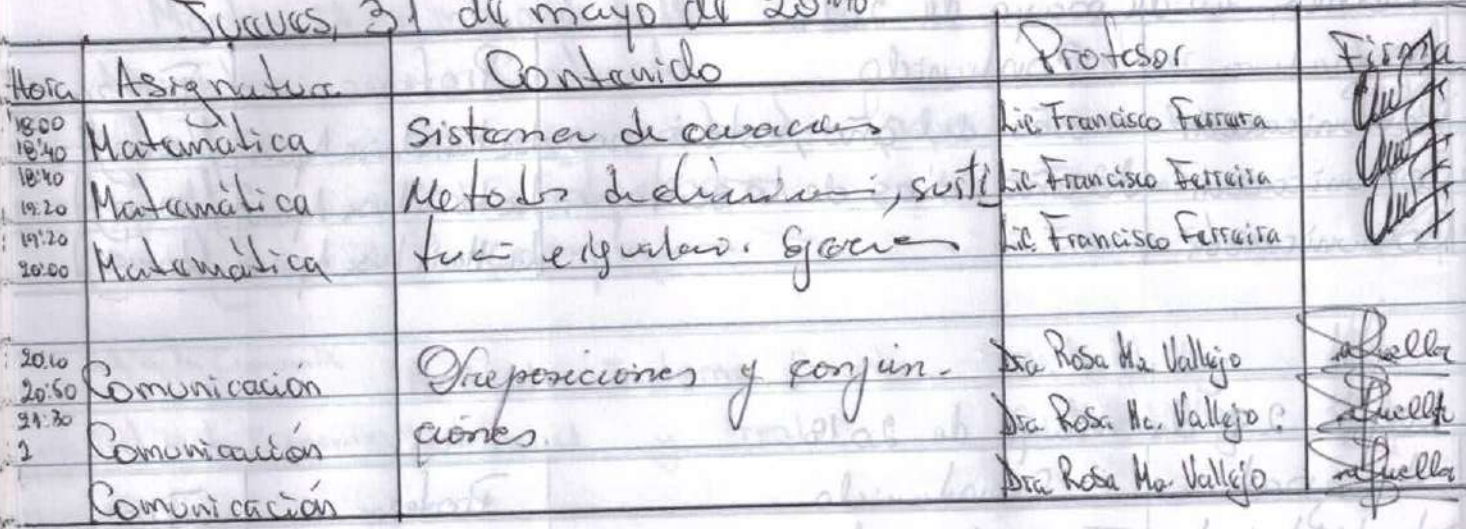 Jueves, 31 de mayo de
Hora Asignatura Contenido Profesor Firma
18:00 18:40 Matemática Sistemas de ecuaciones Lic Francisco Ferreira
18:40 19:20 Matemática Metodos de, susti Lic Francisco Ferreira
19:20 20:00 Matemática Lic Francisco Ferreira
20:10 20:50 Comunicación Preposiciones y conjun- Dra Rosa Ma. Vallejo
21:30 Comunicación ciones. Dra Rosa Ma. Vallejo
Comunicación Dra Rosa Ma. Vallejo